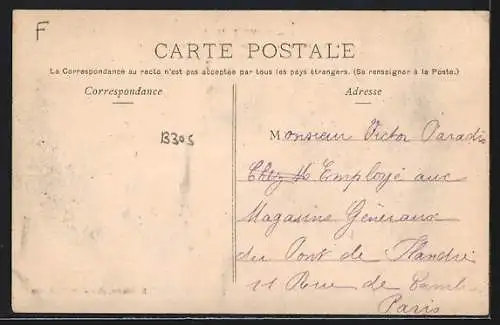 F
CARTE POSTALE
La Correspondance au recto n'est pas acceptée par tous les pays étrangers. (Se renseigner à la Poste.)
Correspondance
Adresse
B305
Monsieur Victor Paradis
Chez M Employé aux
Magasins Généraux
du Pont de Flandre
11 Rue de Camb
Paris